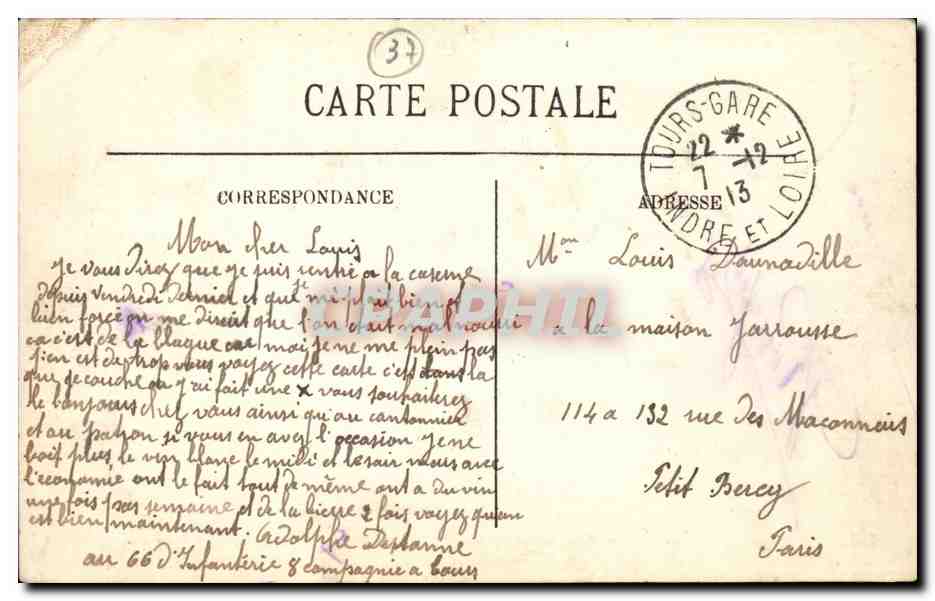 37
CARTE POSTALE
TOURS-GARE
22 * 7 -12 13
INDRE ET LOIRE
CORRESPONDANCE
ADRESSE
Mon cher Louis
Je vous direz que je suis rentré a la caserne
depuis vendredi dernier et que je mi plait bien
bien forcé on me disait que l'on etait mal nourri
ca c'est de la blague moi je ne me plein pas
j'en est de trop vous voyez cette carte c'est dans la
que je couche ou j'ai fait une x vous souhaiterez
le bonjour chez vous ainsi qu'au cantonnier
et au patron si vous en avez l'occasion je ne
boit plus le vin blanc le midi et le soir vous avec
l'économie ont le fait tout de même ont a du vin
une fois pas semaine et de la bierre 2 fois voyez qu'on
est bien maintenant. Adolphe Destanne
au 66 d'Infanterie 8 compagnie a tours
Mon Louis Daunadille
a la maison Jarrousse
114 a 132 rue des Maconnais
Petit Bercy
Paris
CPAPHIL